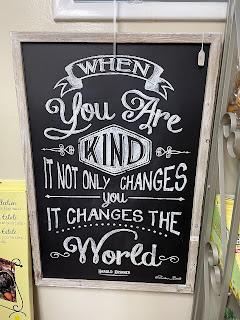 WHEN
You Are
KIND
IT NOT ONLY CHANGES
you
IT CHANGES THE
World